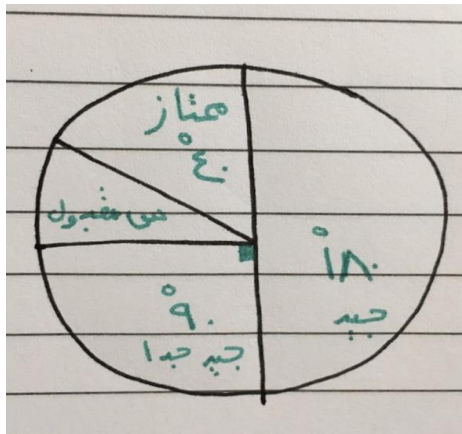 ممتاز
٤٠°
س مقبول
١٨٠°
جيد
٩٠°
جيد جدا